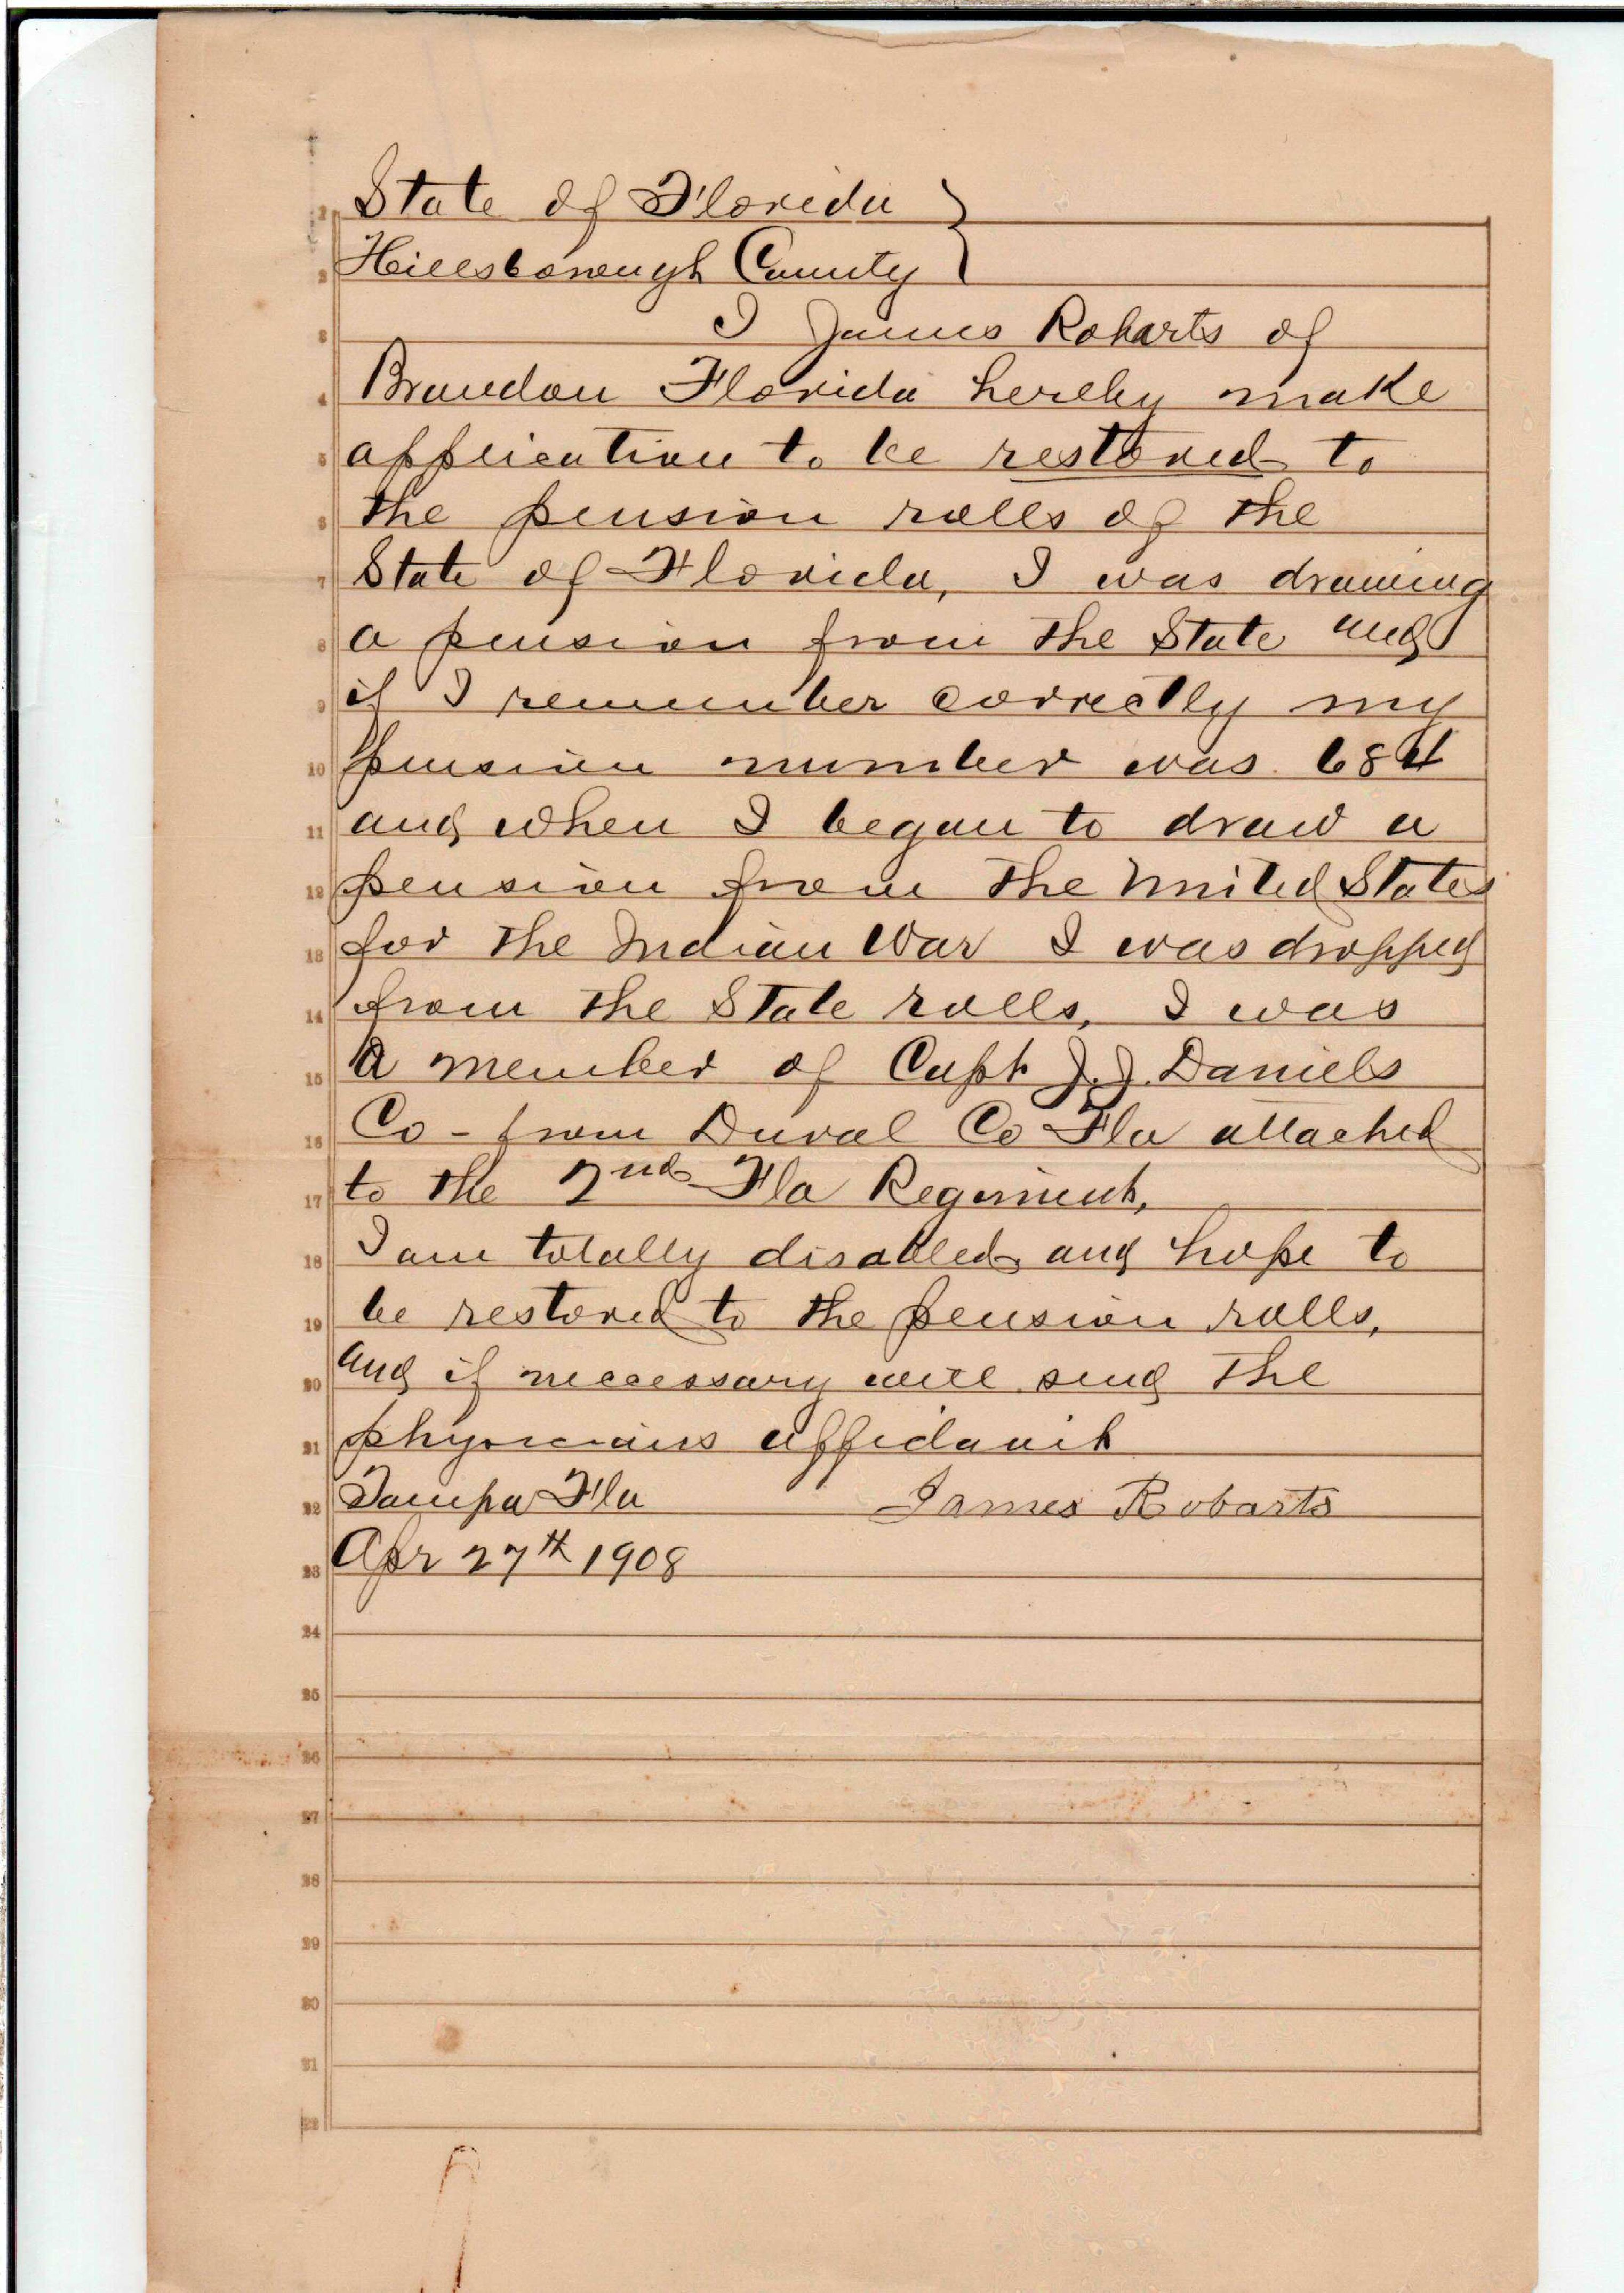 State of Florida }
Hillsborough County }
I James Robarts of
Brandon Florida hereby make
application to be restored to
the pension rolls of the
State of Florida, I was drawing
a pension from the State and
if I remember correctly my
pension number was 684
and when I began to draw a
pension from the United States
for the Indian War I was dropped
from the State rolls, I was
a member of Capt J. J. Daniels
Co - from Duval Co Fla attached
to the 2nd Fla Regiment,
I am totally disabled and hope to
be restored to the pension rolls,
and if necessary will send the
physicians affidavit
Tampa Fla James Robarts
Apr 27th 1908
1
2
3
4
5
6
7
8
9
10
11
12
13
14
15
16
17
18
19
20
21
22
23
24
25
26
27
28
29
30
31
32